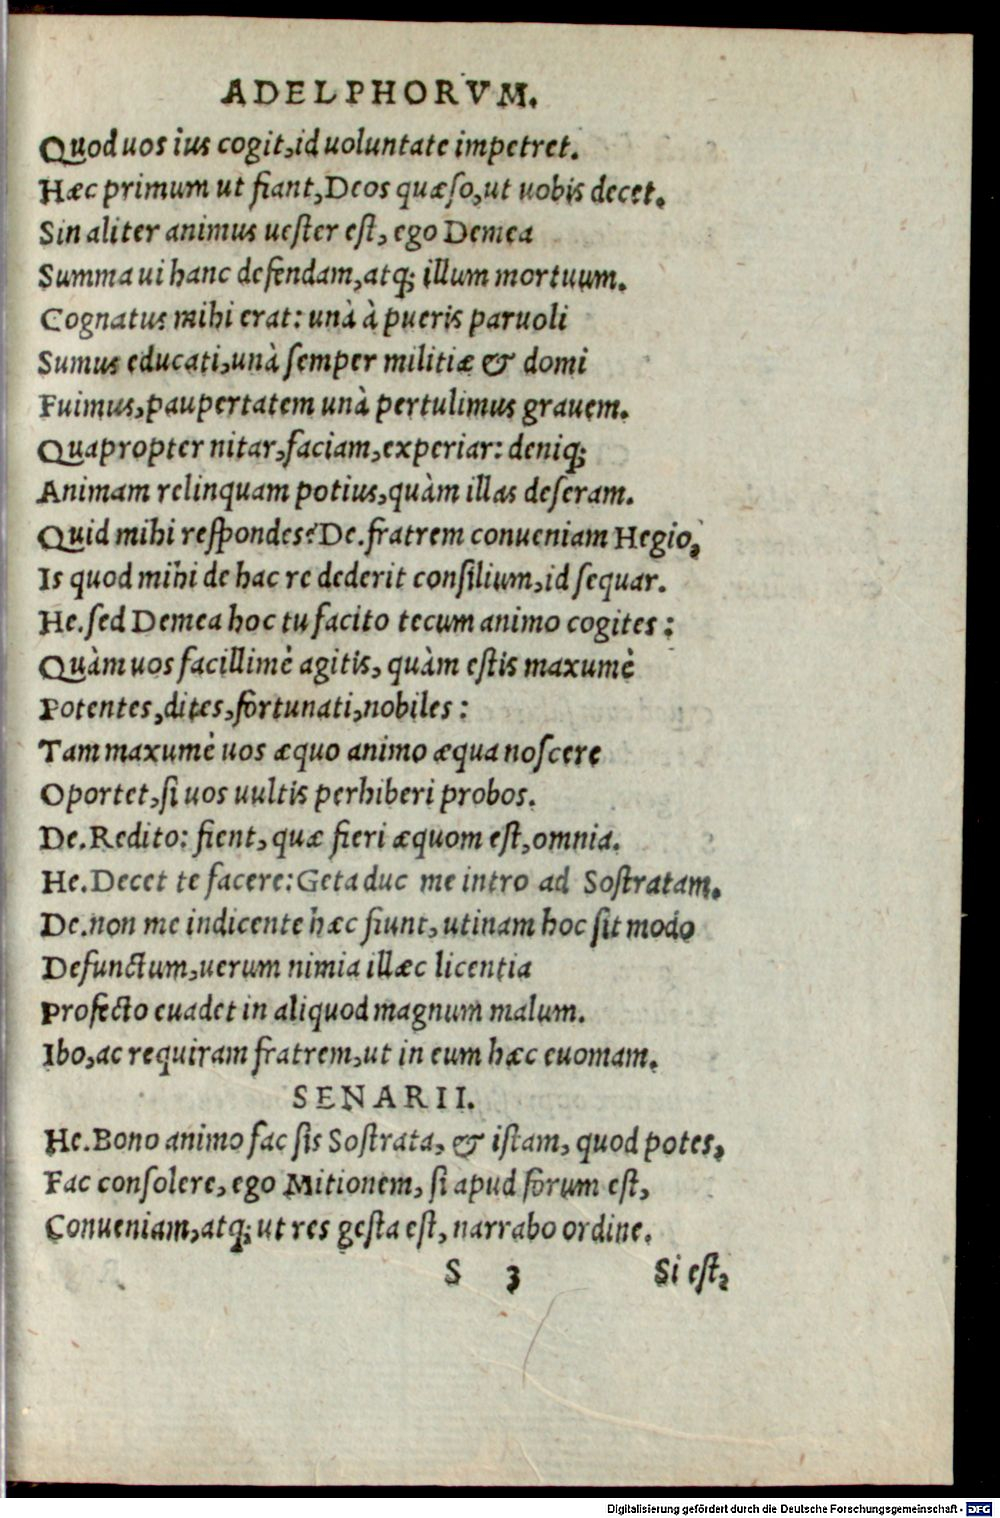 ADELPHORVM.
Quod uos ius cogit, id uoluntate impetret.
Hæc primum ut fiant, Deos quæſo, ut uobis decet.
Sin aliter animus ueſter eſt, ego Demea
Summa ui hanc defendam, atq; illum mortuum.
Cognatus mihi erat: unà à pueris paruoli
Sumus educati, unà ſemper militiæ & domi
Fuimus, paupertatem unà pertulimus grauem.
Quapropter nitar, faciam, experiar: deniq;
Animam relinquam potius, quàm illas deſeram.
Quid mihi reſpondes? De. fratrem conueniam Hegio,
Is quod mihi de hac re dederit conſilium, id ſequar.
He. ſed Demea hoc tu facito tecum animo cogites:
Quàm uos facillimè agitis, quàm eſtis maxumè
Potentes, dites, fortunati, nobiles:
Tam maxumè uos æquo animo æqua noſcere
Oportet, ſi uos uultis perhiberi probos.
De. Redito: fient, quæ fieri æquom eſt, omnia.
He. Decet te facere: Geta duc me intro ad Soſtratam.
De. non me indicente hæc fiunt, utinam hoc ſit modo
Defunctum, uerum nimia illæc licentia
Profecto euadet in aliquod magnum malum.
Ibo, ac requiram fratrem, ut in eum hæc euomam.
SENARII.
He. Bono animo fac ſis Soſtrata, & iſtam, quod potes,
Fac conſolere, ego Mitionem, ſi apud forum eſt,
Conueniam, atq; ut res geſta eſt, narrabo ordine.
S 3 Si eſt,
Digitalisierung gefördert durch die Deutsche Forschungsgemeinschaft - DFG